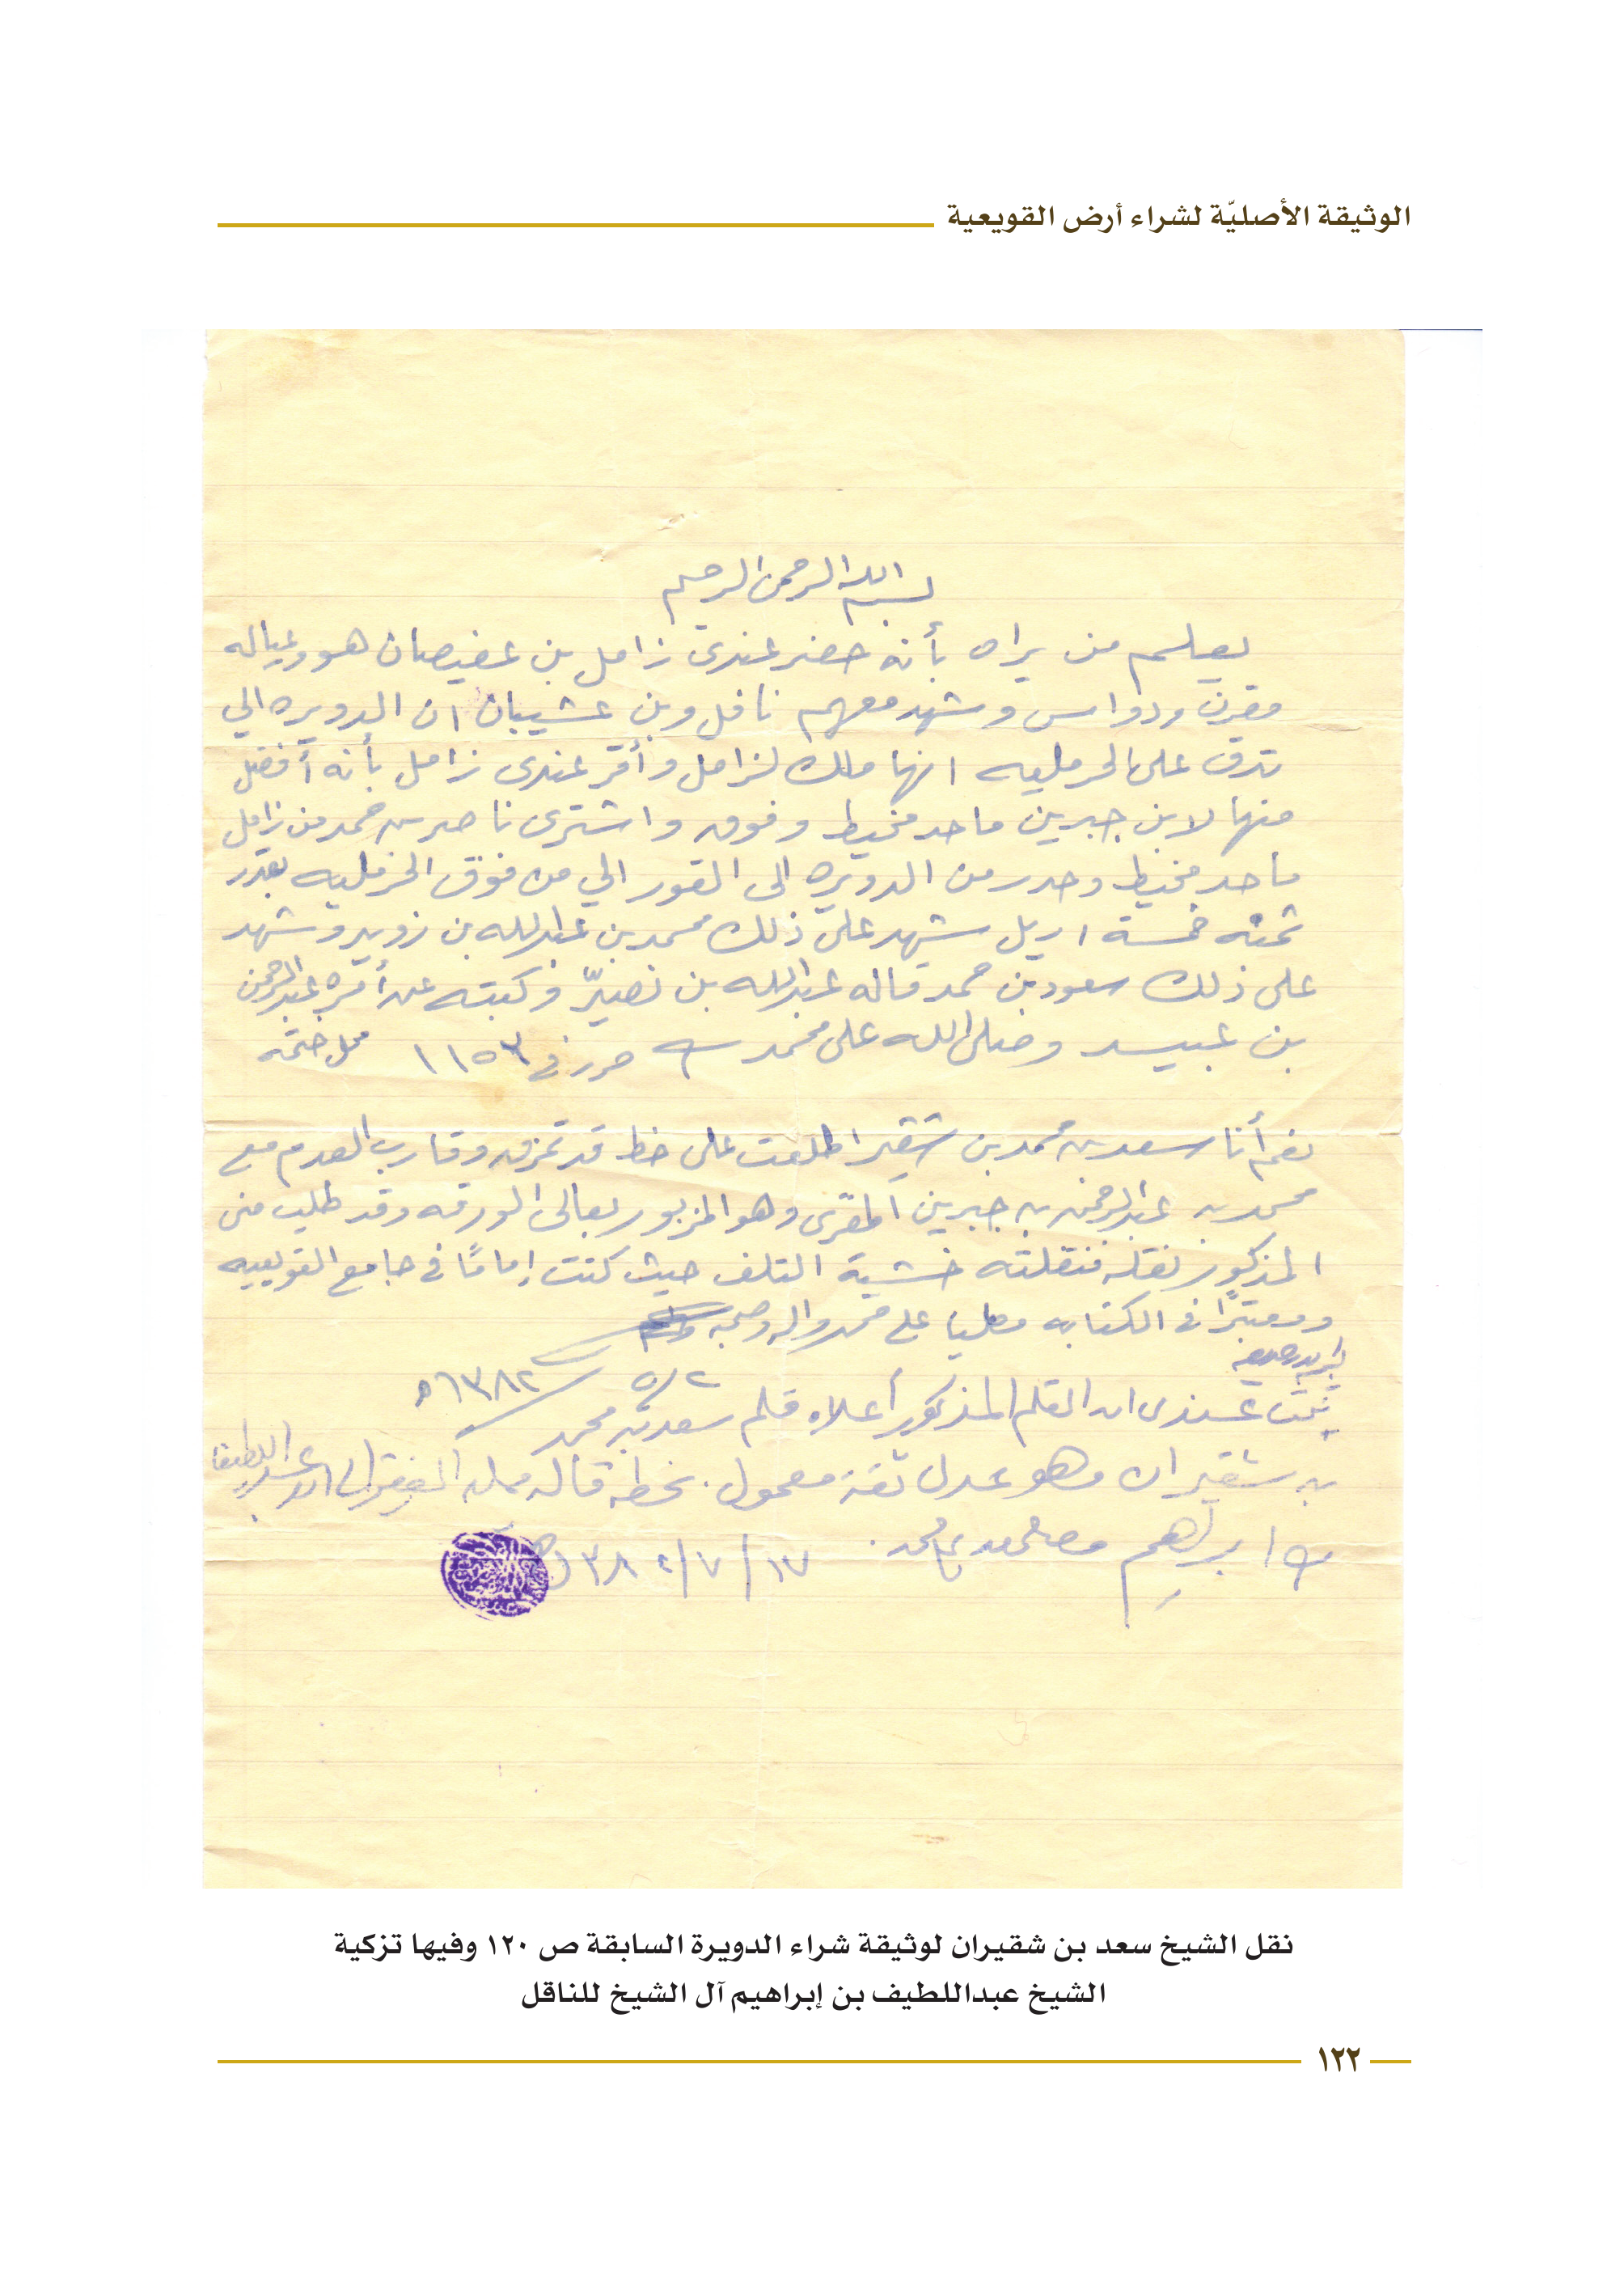 الوثيقة الأصليّة لشراء أرض القويعية
بسم الله الرحمن الرحيم
يعلم من يراه بأنه حضر عندي زامل بن عفيصان هو وعياله
مقرن ودواس وشهد معهم نافل وبن عشيبان ان الدويره الي
تدق على الخرمليه انها ملك لزامل وأقر عندي زامل بأنه أفضل
منها لابن جبرين ماحد مخيط وفوق واشترى ناصر بن حمد من زامل
ماحد مخيط وحدر من الدويره الى القور الي من فوق الخرمليه بقدر
ثمنه خمسة اريل شهد على ذلك محمد بن عبدالله بن زويد وشهد
على ذلك سعود بن حمد قاله عبدالله بن نصير وكتبته عن أمره عبدالرحمن
بن عبيد وصلى الله على محمد حرر في ١١٥٣ محل ختمه
نعم أنا سعد بن محمد بن شقير اطلعت على خط قد تمزق وقارب العدم مع
محمد بن عبدالرحمن بن جبرين المقري وهو المزبور بعالى الورقه وقد طلب منى
المذكور نقله فنقلته خشية التلف حيث كنت إمامًا في جامع القويعيه
ومعتبرًا في الكتابه مصليا على محمد واله وصحبه
٥/٢ ١٣٨٢هـ
ثبت عندى ان القلم المذكور أعلاه قلم سعد بن محمد
بن شقيران وهو عدل ثقة معمول بخطه قاله ممليه الفقير الى الله عبداللطيف
بن ابراهيم محمد
١٧/٧/١٣٨ هـ
نقل الشيخ سعد بن شقيران لوثيقة شراء الدويرة السابقة ص ١٢٠ وفيها تزكية
الشيخ عبداللطيف بن إبراهيم آل الشيخ للناقل
١٢٢